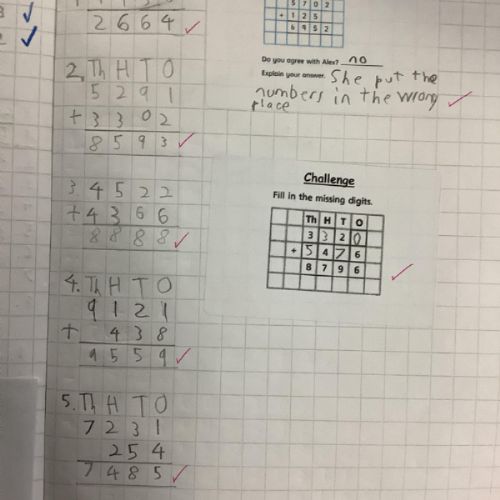 2 6 6 4
2. Th H T O
5 2 9 1
+ 3 3 0 2
8 5 9 3
3. 4 5 2 2
+ 4 3 6 6
8 8 8 8
4. Th H T O
9 1 2 1
+ 4 3 8
9 5 5 9
5. Th H T O
7 2 3 1
2 5 4
7 4 8 5
5 7 0 2
+ 1 2 5
6 9 5 2
Do you agree with Alex? no
Explain your answer. She put the
numbers in the wrong
place
Challenge
Fill in the missing digits.
Th H T O
3 3 2 0
+ 5 4 7 6
8 7 9 6